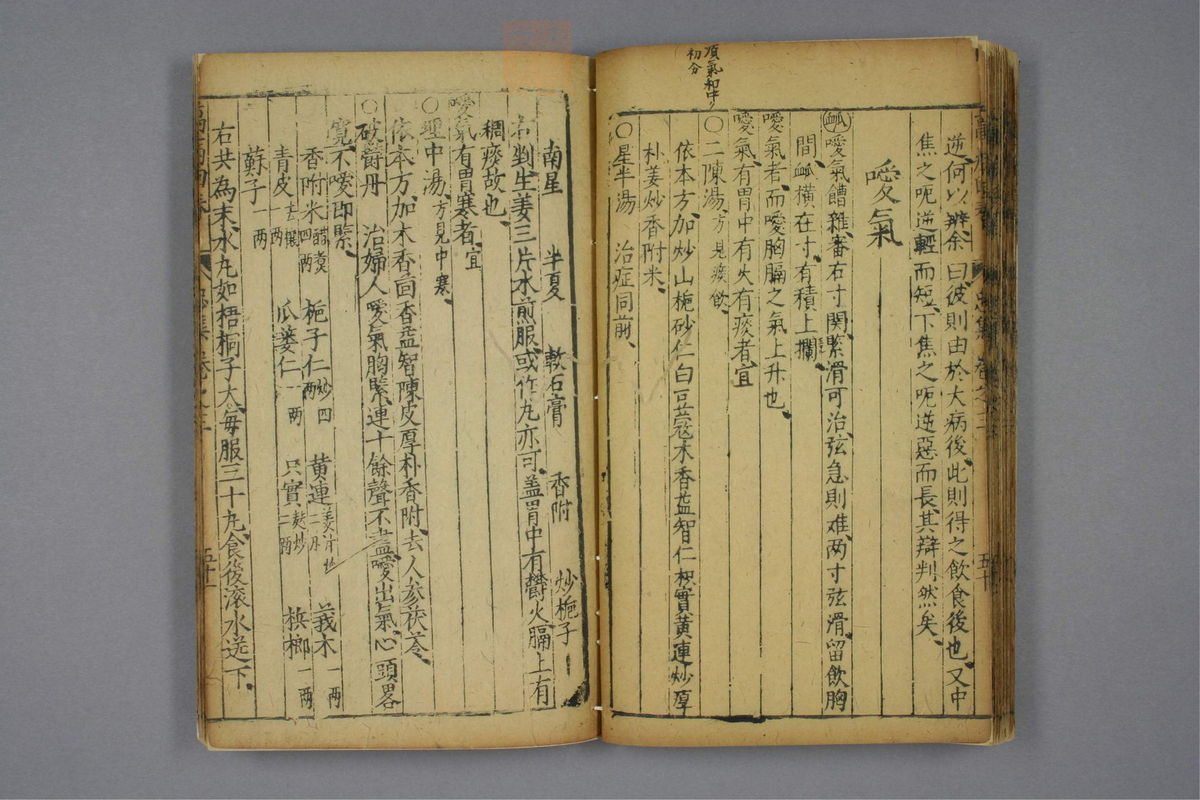 順氣和中
初分
逆何以辨余曰彼則由於大病後此則得之飲食後也又中
焦之呃逆輕而短下焦之呃逆惡而長其辯判然矣
噯氣
噯氣饐雜審右寸関緊滑可治弦急則难两寸弦滑留飲胸
間橫在寸有積上攔
噯氣者而噯胸膈之氣上升也
噯氣有胃中有火有痰者宜
〇二陳湯方見痰飲
依本方加炒山梔砂仁白豆蔻木香益智仁枳實黄連炒厚
朴姜炒香附米
〇星半湯 治症同前
南星 半夏 軟石膏 香附 炒梔子
右剉生姜三片水煎服或作丸亦可盖胃中有鬱火膈上有
稠痰故也
噯氣有胃寒者宜
〇理中湯方見中寒
依本方加木香茴香益智陳皮厚朴香附去人参茯苓
〇破欝丹 治婦人噯氣胸緊連十餘聲不盡噯出氣心頭畧
寬不噯即緊
香附米醋煑四两 梔子仁炒四两 黄連姜汁炒二两 莪木一两
青皮去穰一两 瓜蔞仁一两 只實麸炒一两 梹榔一两
蘇子一两
右共為末水丸如梧桐子大每服三十丸食後滚水送下